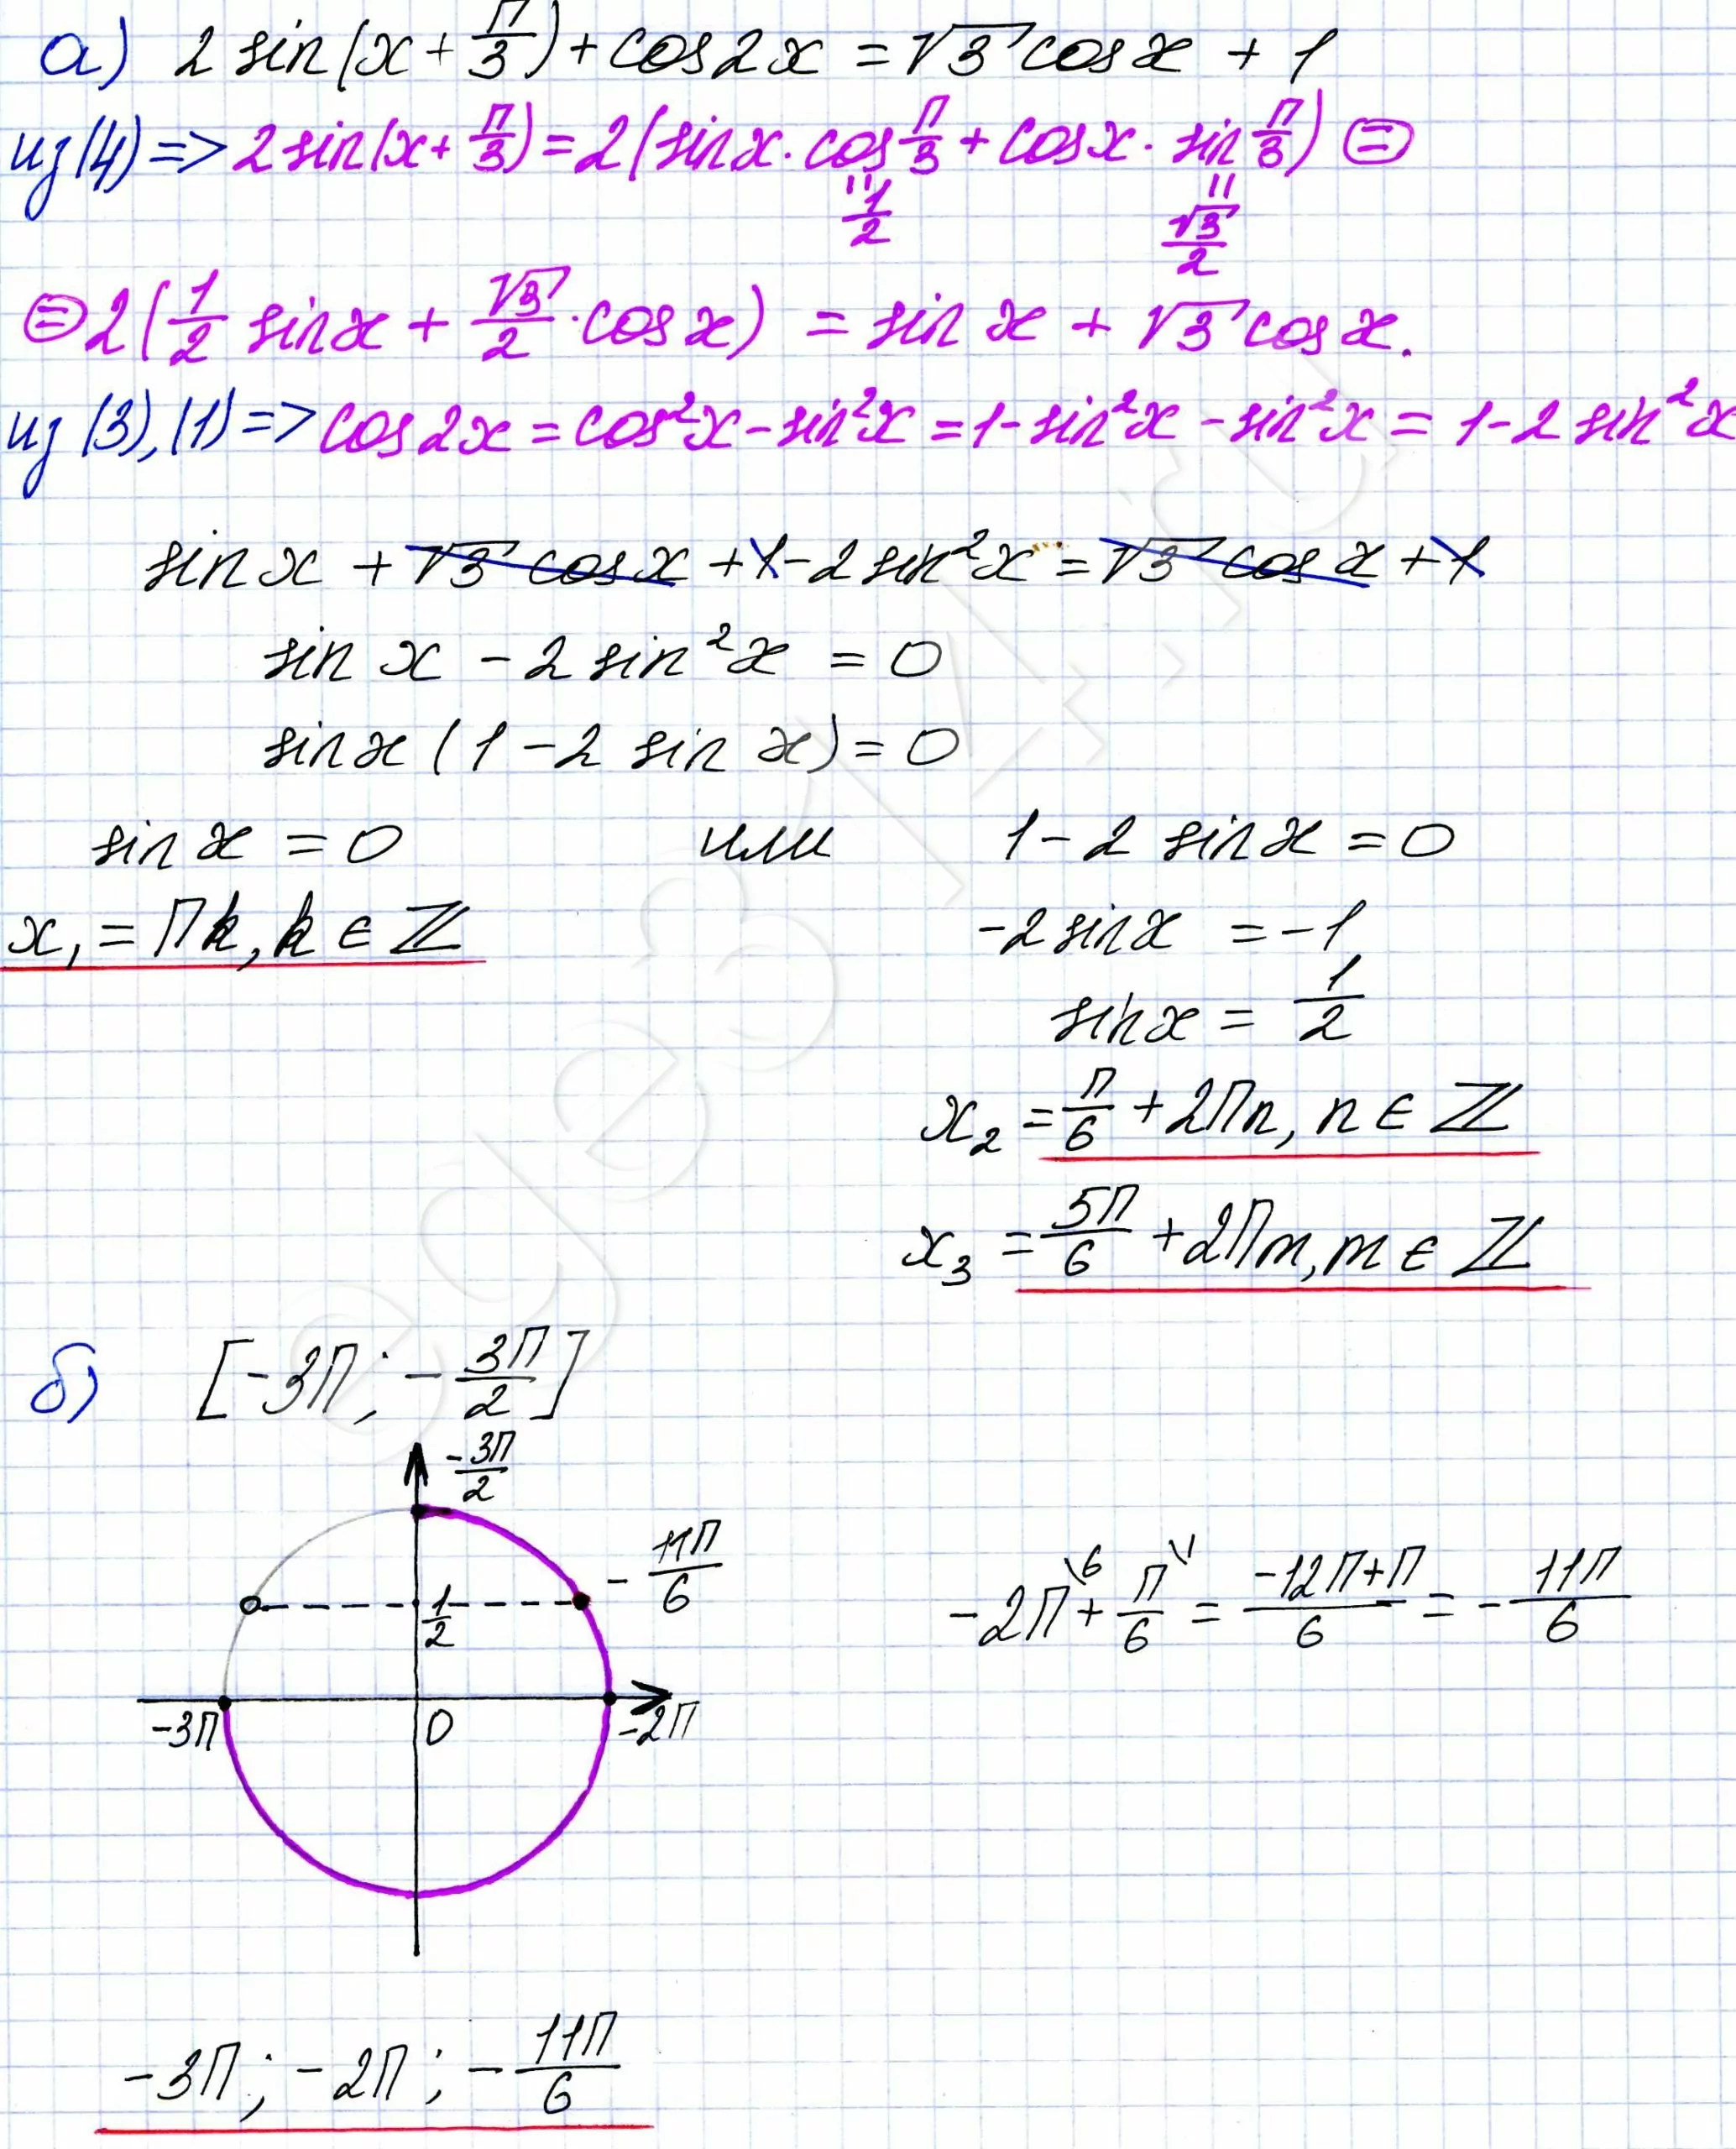 а) 2 sin(x + π/3) + cos2x = √3 cosx + 1
из (4) => 2 sin(x + π/3) = 2(sinx · cos π/3 + cosx · sin π/3) ⊜
" 1/2 " √3/2
⊜ 2(1/2 sinx + √3/2 · cosx) = sin x + √3 cosx.
из (3), (1) => cos2x = cos²x - sin²x = 1 - sin²x - sin²x = 1 - 2 sin²x
sin x + √3 cosx + 1 - 2 sin²x = √3 cosx + 1
sin x - 2 sin²x = 0
sinx (1 - 2 sin x) = 0
sin x = 0 или 1 - 2 sinx = 0
x₁ = πk, k ∈ ℤ -2 sinx = -1
sinx = 1/2
x₂ = π/6 + 2πn, n ∈ ℤ
x₃ = 5π/6 + 2πm, m ∈ ℤ
б) [-3π; -3π/2]
-3π/2
-11π/6
1/2
-2π\6 + π/6\1 = (-12π+π)/6 = -11π/6
-3π 0 -2π
-3π; -2π; -11π/6
ege314.ru